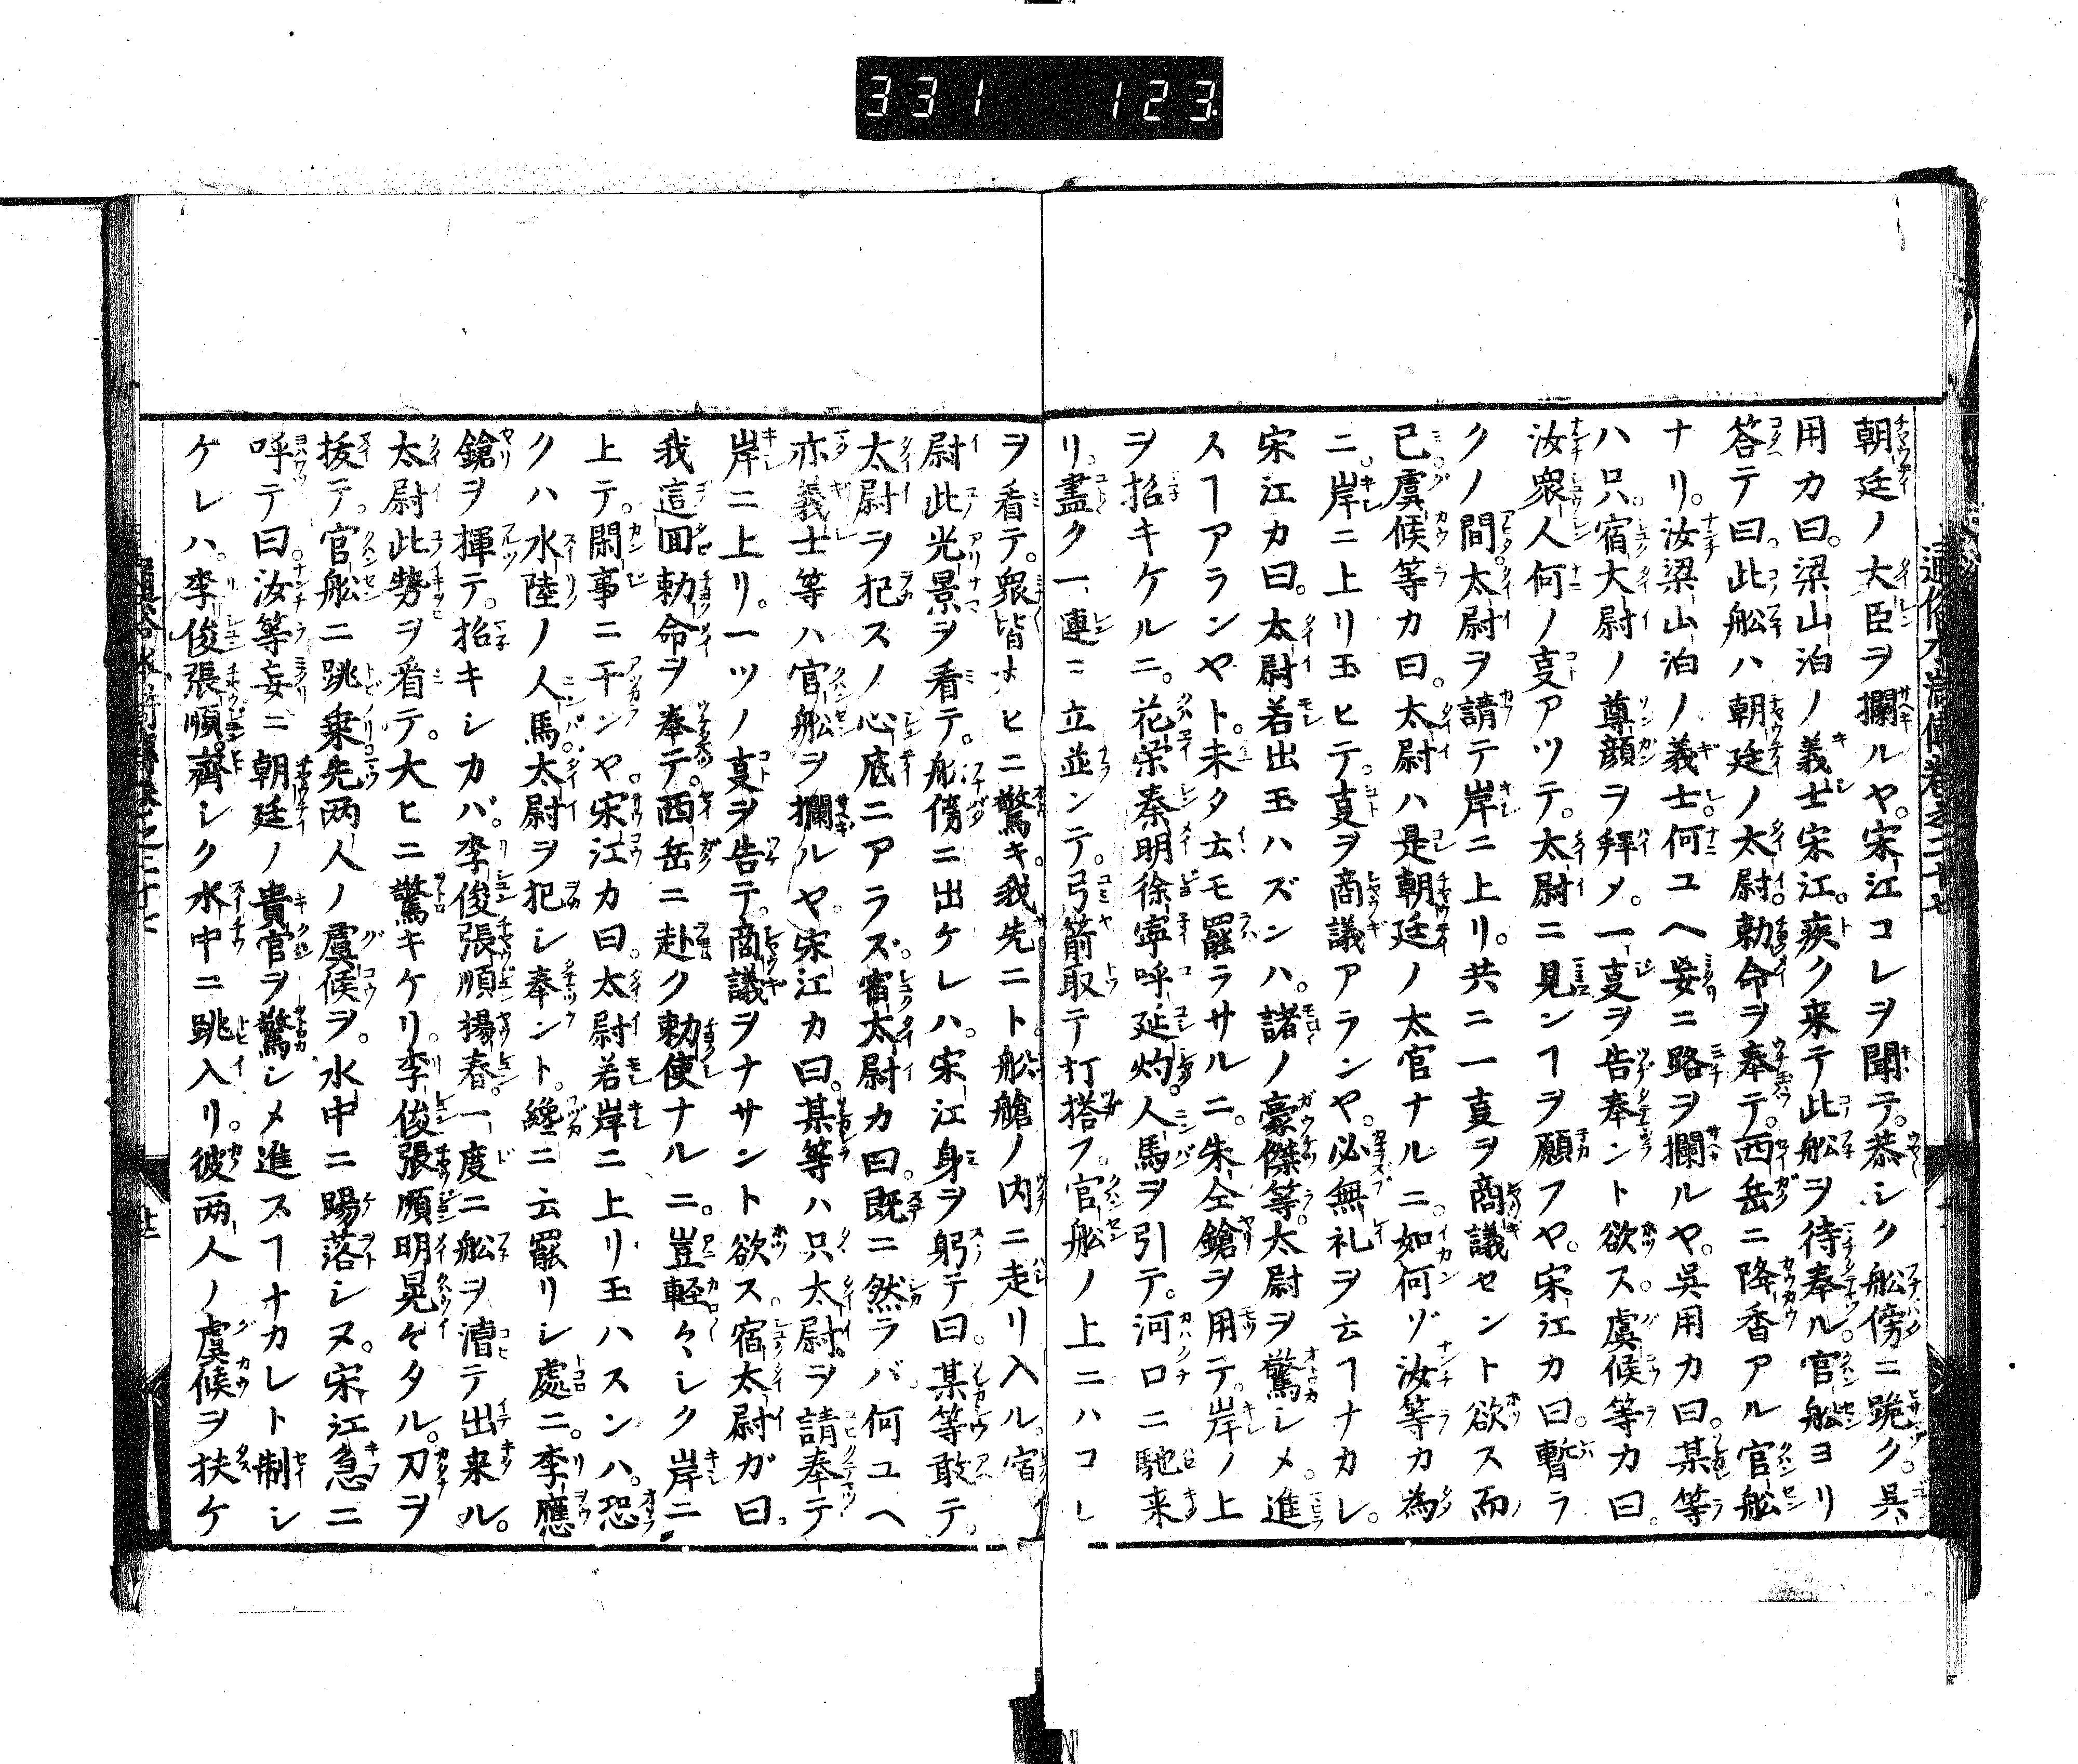 331 123
朝廷ノ大臣ヲ攔ルヤ。宋江コレヲ聞テ。恭シク舩傍ニ跪ク。呉
用カ曰。梁山泊ノ義士宋江。疾ク来テ此舩ヲ待奉ル。官舩ヨリ
答テ曰。此舩ハ朝廷ノ太尉。勅命ヲ奉テ。西岳ニ降香アル官舩
ナリ。汝梁山泊ノ義士。何ユヘ妄ニ路ヲ攔ルヤ。呉用カ曰。某等
ハ只。宿大尉ノ尊顔ヲ拜メ。一叓ヲ告奉ント欲ス。虞候等カ曰。
汝衆人何ノ叓アツテ。太尉ニ見ンヿヲ願フヤ。宋江カ曰。暫ラ
クノ間。太尉ヲ請テ岸ニ上リ。共ニ一叓ヲ商議セント欲ス而
已。虞候等カ曰。太尉ハ是朝廷ノ太官ナルニ。如何ゾ汝等カ為
ニ。岸ニ上リ玉ヒテ。叓ヲ商議アランヤ。必無礼ヲ云ヿナカレ。
宋江カ曰。太尉若出玉ハズンハ。諸ノ豪傑等。太尉ヲ驚レメ。進
スヿアランヤト。未タ云モ罷ラサルニ。朱仝鎗ヲ用テ。岸ノ上
ヲ招キケルニ。花栄秦明徐寧呼延灼。人馬ヲ引テ。河口ニ馳来
リ。盡ク一連ニ立並ンテ。弓箭取テ打搭フ。官舩ノ上ニハコレ
ヲ看テ。衆皆大ヒニ驚キ。我先ニト。船艙ノ内ニ走リ入ル。宿
尉此光景ヲ看テ。舩傍ニ出ケレハ。宋江身ヲ躬テ曰。某等敢テ。
太尉ヲ犯スノ心底ニアラズ。宿太尉カ曰。既ニ然ラバ。何ユヘ
亦義士等ハ官舩ヲ攔ルヤ。宋江カ曰。某等ハ只太尉。ヲ請奉テ
岸ニ上リ。一ツノ叓ヲ告テ。商議ヲナサント欲ス。宿太尉ガ曰。
我這回勅命ヲ奉テ。西岳ニ赴ク勅使ナルニ。豈軽々シク岸ニ
上テ。閑事ニ干ンヤ。宋江カ曰。太尉若岸ニ上リ玉ハスンハ。恐
クハ水陸ノ人馬。太尉ヲ犯シ奉ント。纔ニ云罷リシ處ニ。李應
鎗ヲ揮テ。招キシカバ。李俊張順楊春。一度ニ舩ヲ漕テ出来ル。
太尉此勢ヲ看テ。大ヒニ驚キケリ。李俊張順明晃々タル。刀ヲ
拔テ。官舩ニ跳乗先两人ノ虞候ヲ。水中ニ踢落シヌ。宋江急ニ
呼テ曰。汝等妄ニ朝廷ノ貴官ヲ驚シメ進スヿナカレト制シ
ケレハ。李俊張順。齊シク水中ニ跳入リ。彼两人ノ虞候ヲ扶ケ